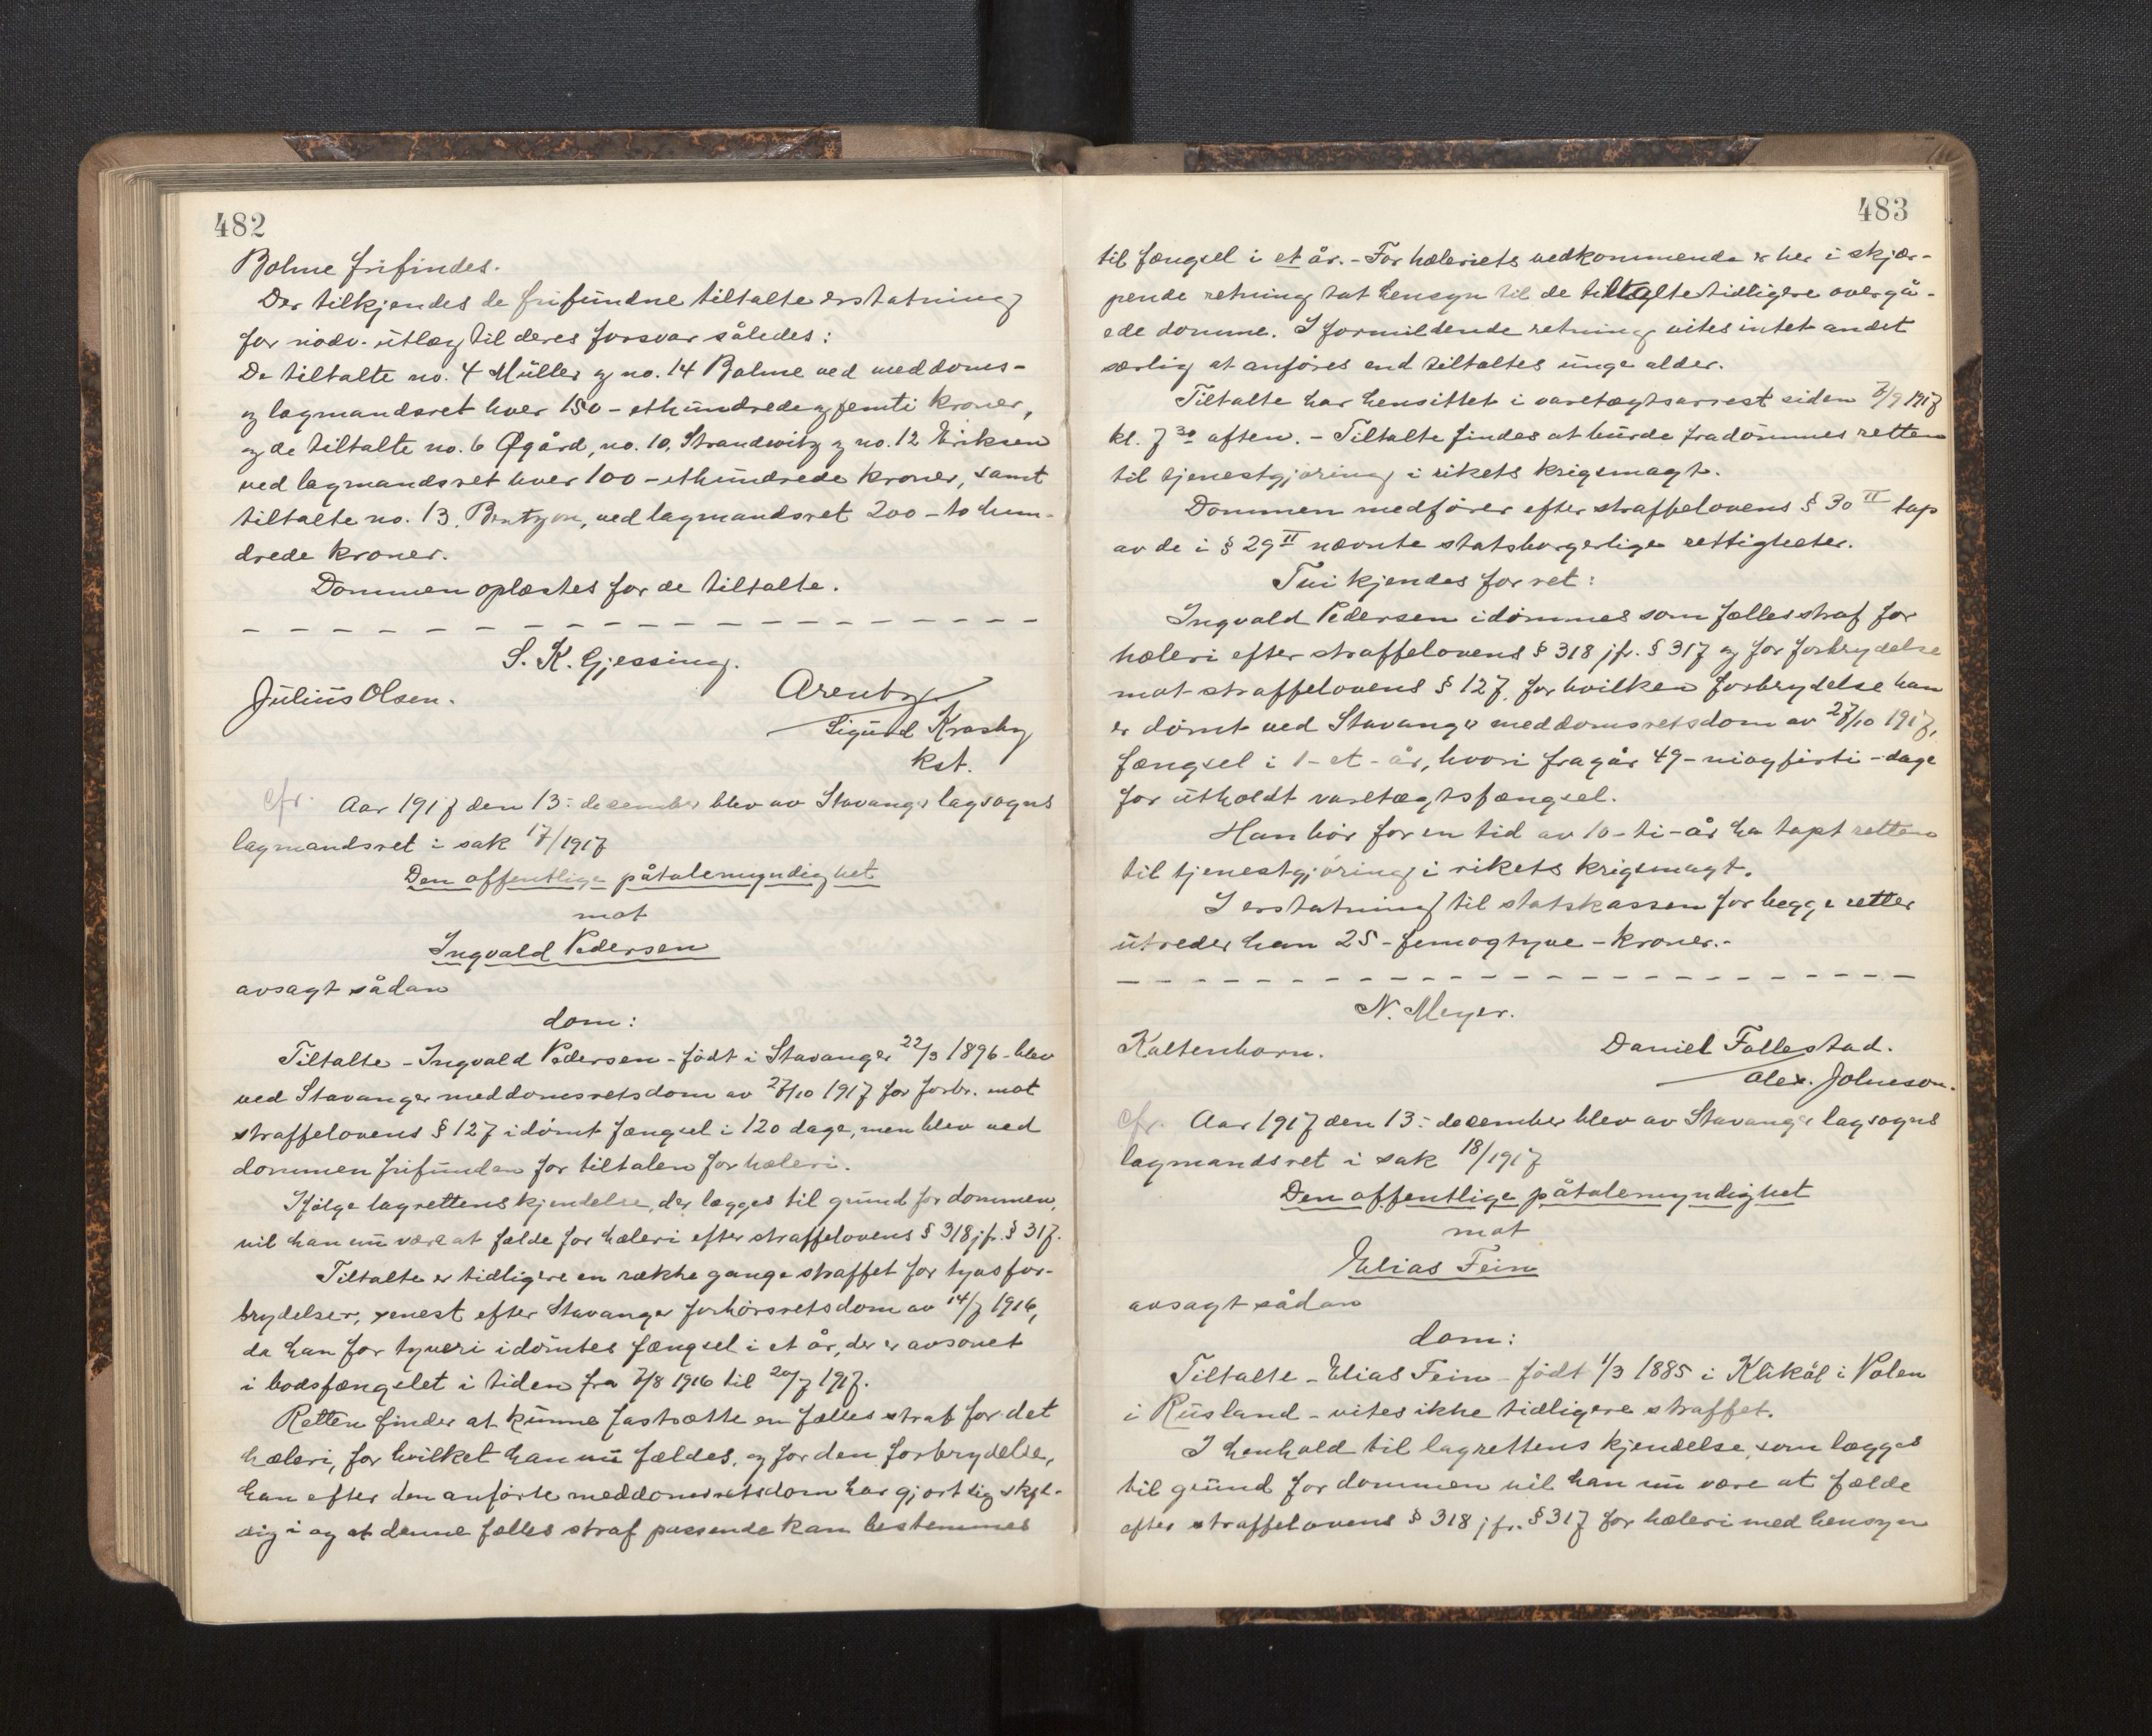 482
Bohne frifindes.
Der tilkjendes de frifundne tiltalte erstatning
for nødv. utlæg til deres forsvar således:
De tiltalte no. 4 Müller og no. 14 Bohne ved meddoms-
og lagmandsret hver 150 - ethundredeogfemti kroner,
og de tiltalte no. 6 Øgård, no. 10, Strandwitz og no. 12 Eriksen
ved lagmandsret hver 100 - ethundrede kroner, samt
tiltalte no. 13. Bentzon, ved lagmandsret 200 - to hun-
drede kroner.
Dommen oplæstes for de tiltalte.
S. K. Gjessing.
Julius Olsen.
Arentz
Sigurd Krosby
kst.
cfr. Aar 1917 den 13: december blev av Stavanger lagsogns
lagmandsret i sak 17/1917
Den offentlige påtalemyndighet
mot
Ingvald Pedersen
avsagt sådan
dom:
Tiltalte - Ingvald Pedersen - født i Stavanger 22/3 1896 - blev
ved Stavanger meddomsretsdom av 27/10 1917 for forbr. mot
straffelovens § 127 idømt fængsel i 120 dage, men blev ved
dommen frifunden for tiltalen for hæleri.
Ifølge lagrettens kjendelse, der lægges til grund for dommen,
vil han nu være at fælde for hæleri efter straffelovens § 318 jfr. § 317.
Tiltalte er tidligere en række gange straffet for tyvsfor-
brydelser, senest efter Stavanger forhørsretsdom av 14/7 1916,
da han for tyveri idømtes fængsel i et år, der er avsonet
i bodsfængslet i tiden fra 7/8 1916 til 20/7 1917.
Retten finder at kunne fastsætte en fælles straf for det
hæleri, for hvilket han nu fældes, og for den forbrydelse,
han efter den anførte meddomsretsdom har gjort sig skyl-
dig i og at denne fælles straf passende kan bestemmes
483
til fængsel i et år. - For hæleriets vedkommende er her i skjær-
pende retning tat hensyn til de tiltalte tidligere overgå-
ede domme. I formildende retning vites intet andet
særlig at anføres end tiltaltes unge alder.
Tiltalte har hensittet i varetægtsarrest siden 7/9 1917
kl. 7 30 aften. - Tiltalte findes at burde fradømmes retten
til tjenestgjøring i rikets krigsmagt.
Dommen medfører efter straffelovens § 30 II tap
av de i § 29 II nævnte statsborgerlige rettigheter.
Thi kjendes for ret:
Ingvald Pedersen idømmes som fællesstraf for
hæleri efter straffelovens § 318 jfr. § 317 og for forbrydelse
mot straffelovens § 127, for hvilken forbrydelse han
er dømt ved Stavanger meddomsretsdom av 27/10 1917,
fængsel i 1 - et - år, hvori fragår 49 - niogfirti - dage
for utholdt varetægtsfængsel.
Han bør for en tid av 10 - ti - år ha tapt retten
til tjenestgjøring i rikets krigsmagt.
I erstatning til statskassen for begge retter
utreder han 25 - femogtyve - kroner. -
N. Meyer.
Kaltenborn.
Daniel Follestad.
Alex. Johnson.
cfr. Aar 1917 den 13: december blev av Stavanger lagsogns
lagmandsret i sak 18/1917
Den offentlige påtalemyndighet
mot
Elias Fein
avsagt sådan
dom:
Tiltalte - Elias Fein - født 1/3 1885 i Klikål i Polen
i Rusland - vites ikke tidligere straffet.
I henhold til lagrettens kjendelse, som lægges
til grund for dommen vil han nu være at fælde
efter straffelovens § 318 jfr. § 317 for hæleri med hensyn